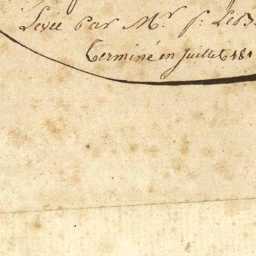 Levée par Mr. J. Le
Terminé en Juillet 18